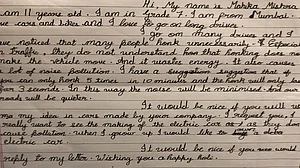 Hi, My name is Mahika Mishra
am 11 years old. I am in grade 7. I am from Mumbai.
ove cars and bikes and I love to go on long drives.
I go on many drives and I
ave noticed that many people honk unnecessarily. Especial
Traffic. They do not understand how that honking does no
make the vehicle move. And it wastes energy. It also causes
a lot of noise pollution. I have a suggestion that
you can only honk 5 times in 10 minutes and the honk will
than 3 seconds. In this way the noise will be minimised And our
roads will be quieter.
It would be nice if you will
use my idea in cars made by your company. I request you, I
really want to see the making of the electric car as they do
cause pollution. When I grow up I would like to a
electric car.
It would be nice if you would
reply to my letter. Wishing you a happy holi.